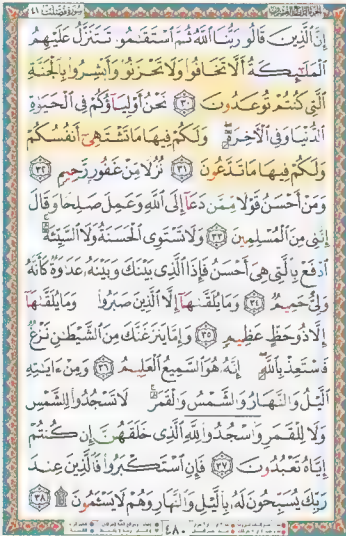 سورة فصلت ٤١
إِنَّ ٱلَّذِينَ قَالُوا۟ رَبُّنَا ٱللَّهُ ثُمَّ ٱسْتَقَٰمُوا۟ تَتَنَزَّلُ عَلَيْهِمُ
ٱلْمَلَٰٓئِكَةُ أَلَّا تَخَافُوا۟ وَلَا تَحْزَنُوا۟ وَأَبْشِرُوا۟ بِٱلْجَنَّةِ
ٱلَّتِى كُنتُمْ تُوعَدُونَ ٣٠ نَحْنُ أَوْلِيَآؤُكُمْ فِى ٱلْحَيَوٰةِ
ٱلدُّنْيَا وَفِى ٱلْءَاخِرَةِ ۖ وَلَكُمْ فِيهَا مَا تَشْتَهِىٓ أَنفُسُكُمْ
وَلَكُمْ فِيهَا مَا تَدَّعُونَ ٣١ نُزُلًا مِّنْ غَفُورٍ رَّحِيمٍ ٣٢
وَمَنْ أَحْسَنُ قَوْلًا مِّمَّن دَعَآ إِلَى ٱللَّهِ وَعَمِلَ صَٰلِحًا وَقَالَ
إِنَّنِى مِنَ ٱلْمُسْلِمِينَ ٣٣ وَلَا تَسْتَوِى ٱلْحَسَنَةُ وَلَا ٱلسَّيِّئَةُ ۚ
ٱدْفَعْ بِٱلَّتِى هِىَ أَحْسَنُ فَإِذَا ٱلَّذِى بَيْنَكَ وَبَيْنَهُۥ عَدَٰوَةٌ كَأَنَّهُۥ
وَلِىٌّ حَمِيمٌ ٣٤ وَمَا يُلَقَّىٰهَآ إِلَّا ٱلَّذِينَ صَبَرُوا۟ وَمَا يُلَقَّىٰهَآ
إِلَّا ذُو حَظٍّ عَظِيمٍ ٣٥ وَإِمَّا يَنزَغَنَّكَ مِنَ ٱلشَّيْطَٰنِ نَزْغٌ
فَٱسْتَعِذْ بِٱللَّهِ ۖ إِنَّهُۥ هُوَ ٱلسَّمِيعُ ٱلْعَلِيمُ ٣٦ وَمِنْ ءَايَٰتِهِ
ٱلَّيْلُ وَٱلنَّهَارُ وَٱلشَّمْسُ وَٱلْقَمَرُ ۚ لَا تَسْجُدُوا۟ لِلشَّمْسِ
وَلَا لِلْقَمَرِ وَٱسْجُدُوا۟ لِلَّهِ ٱلَّذِى خَلَقَهُنَّ إِن كُنتُمْ
إِيَّاهُ تَعْبُدُونَ ٣٧ فَإِنِ ٱسْتَكْبَرُوا۟ فَٱلَّذِينَ عِندَ
رَبِّكَ يُسَبِّحُونَ لَهُۥ بِٱلَّيْلِ وَٱلنَّهَارِ وَهُمْ لَا يَسْـَٔمُونَ ۩ ٣٨
٤٨٠